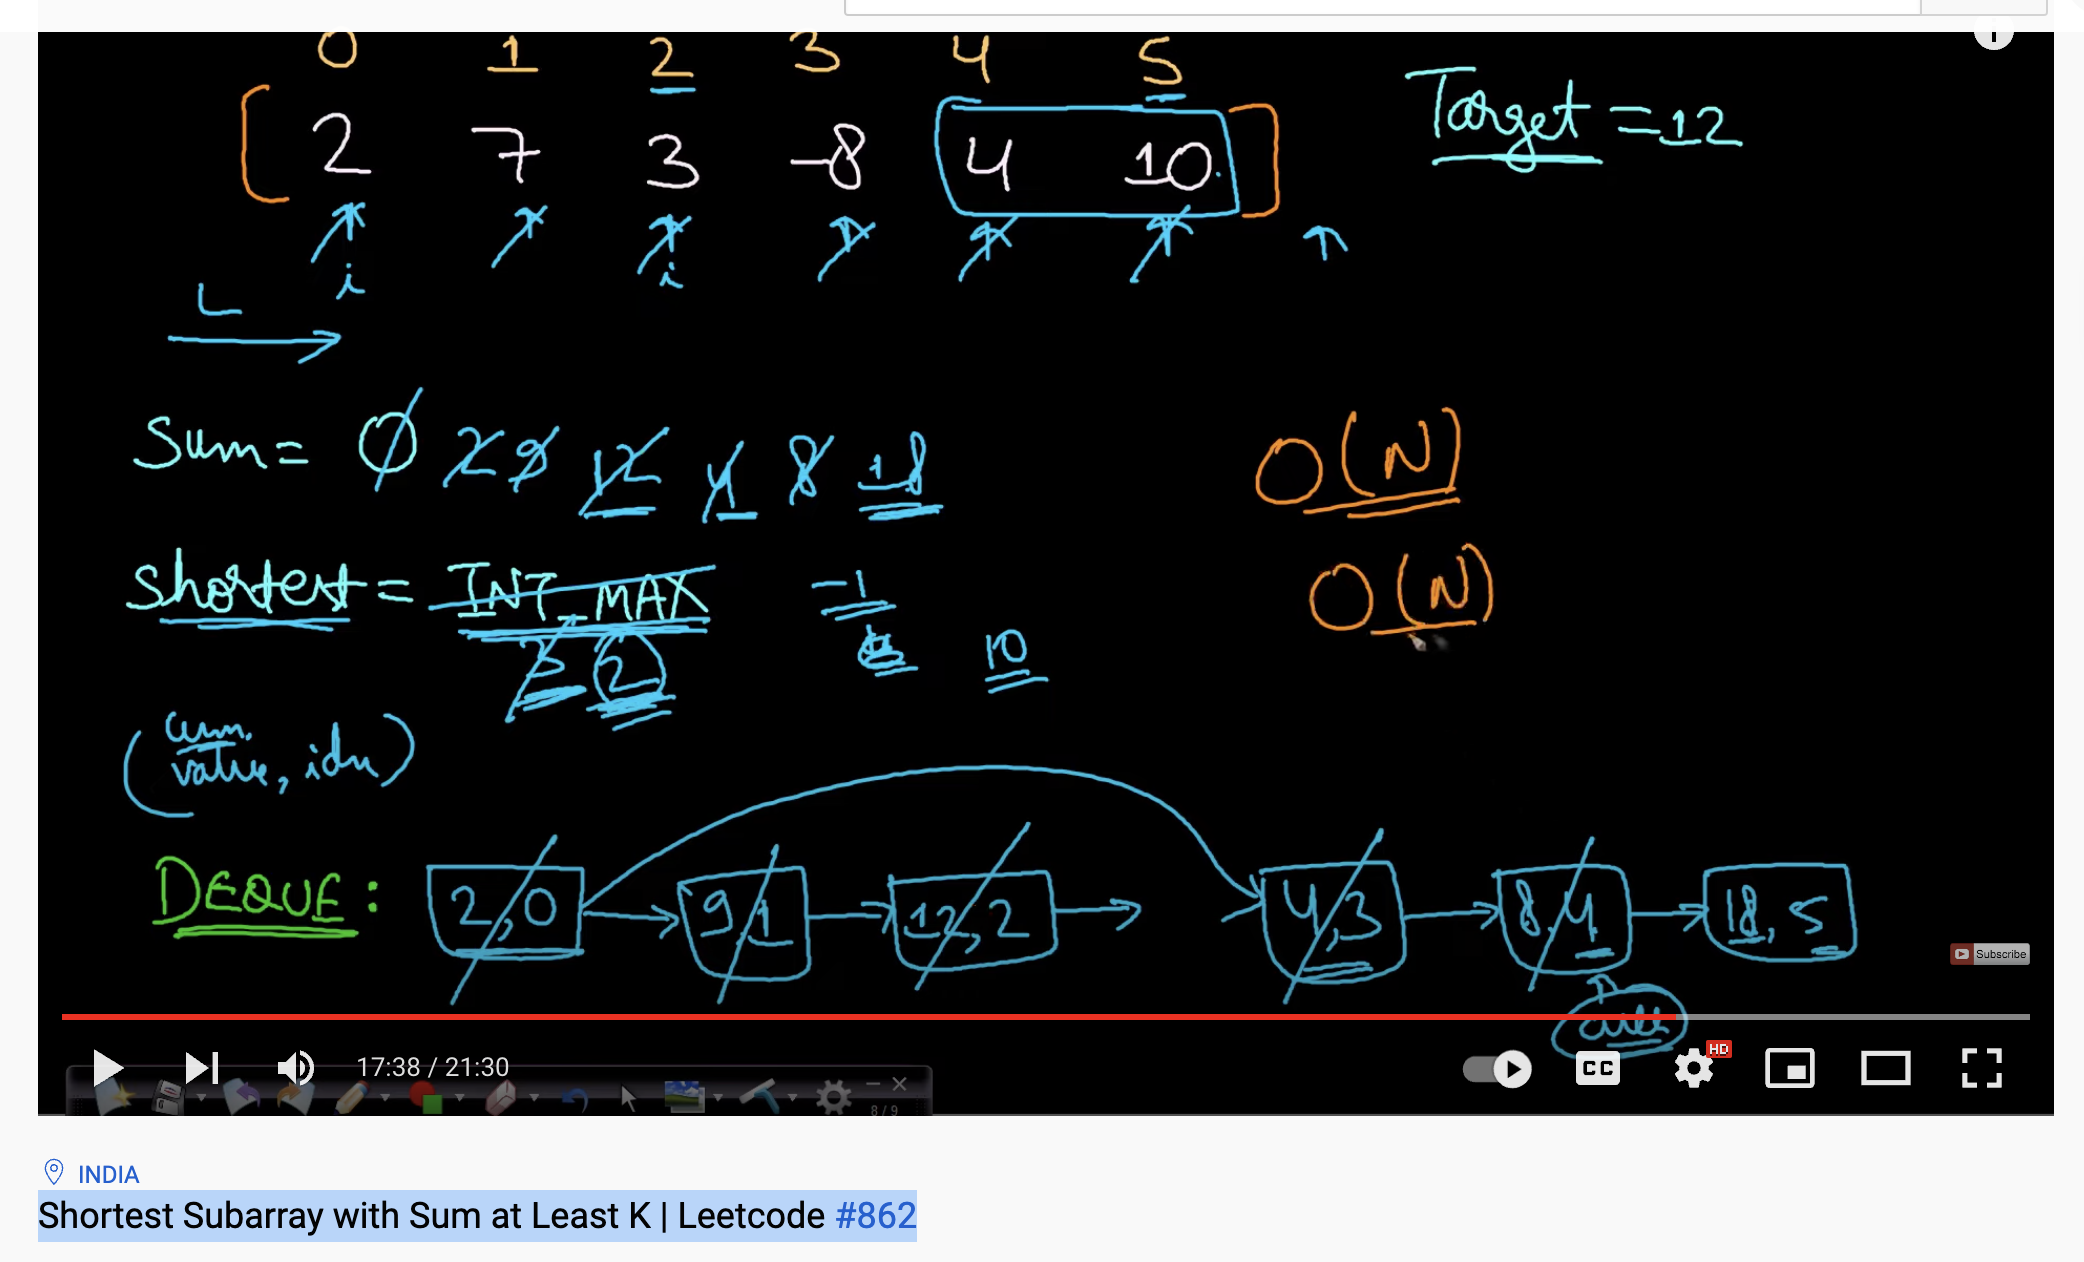 0 1 2 3 4 5
[ 2 7 3 -8 4 10 ]
Target = 12
i i
L
Sum = 0 2 9 12 4 8 18
O(N)
shortest = INT_MAX -1
O(N)
3 2 10
(cum. value, idx)
DEQUE: 2,0 9,1 12,2 4,3 8,4 18,5
Subscribe
17:38 / 21:30
CC
HD
8/9
INDIA
Shortest Subarray with Sum at Least K | Leetcode #862